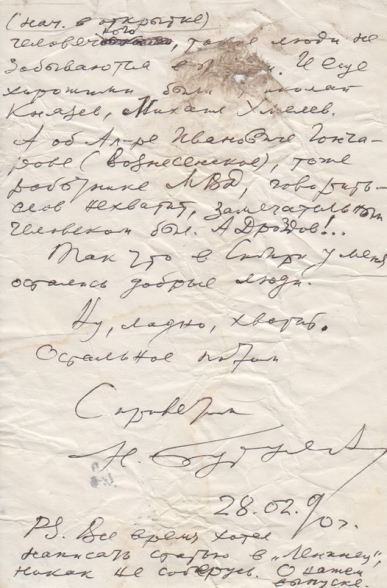 (нач. в открытке)
человечного, такие люди не
забываются в . И еще
хорошими были Николай
Князев, Михаил Хмелев.
А об Ал-ре Ивановиче Гонча-
рове (Вознесенское), тоже
работнике МВД, говорить-
слов нехватит, замечательным
человеком был. А Дроздов!..
Так что в Сибири у меня
остались добрые люди.
Ну, ладно, хватит.
Остальное потом
С приветом
Н.
28.02.90г.
PS. Все время хотел
написать статью в „Ленинец",
никак не соберусь. О нашем
выпуске.